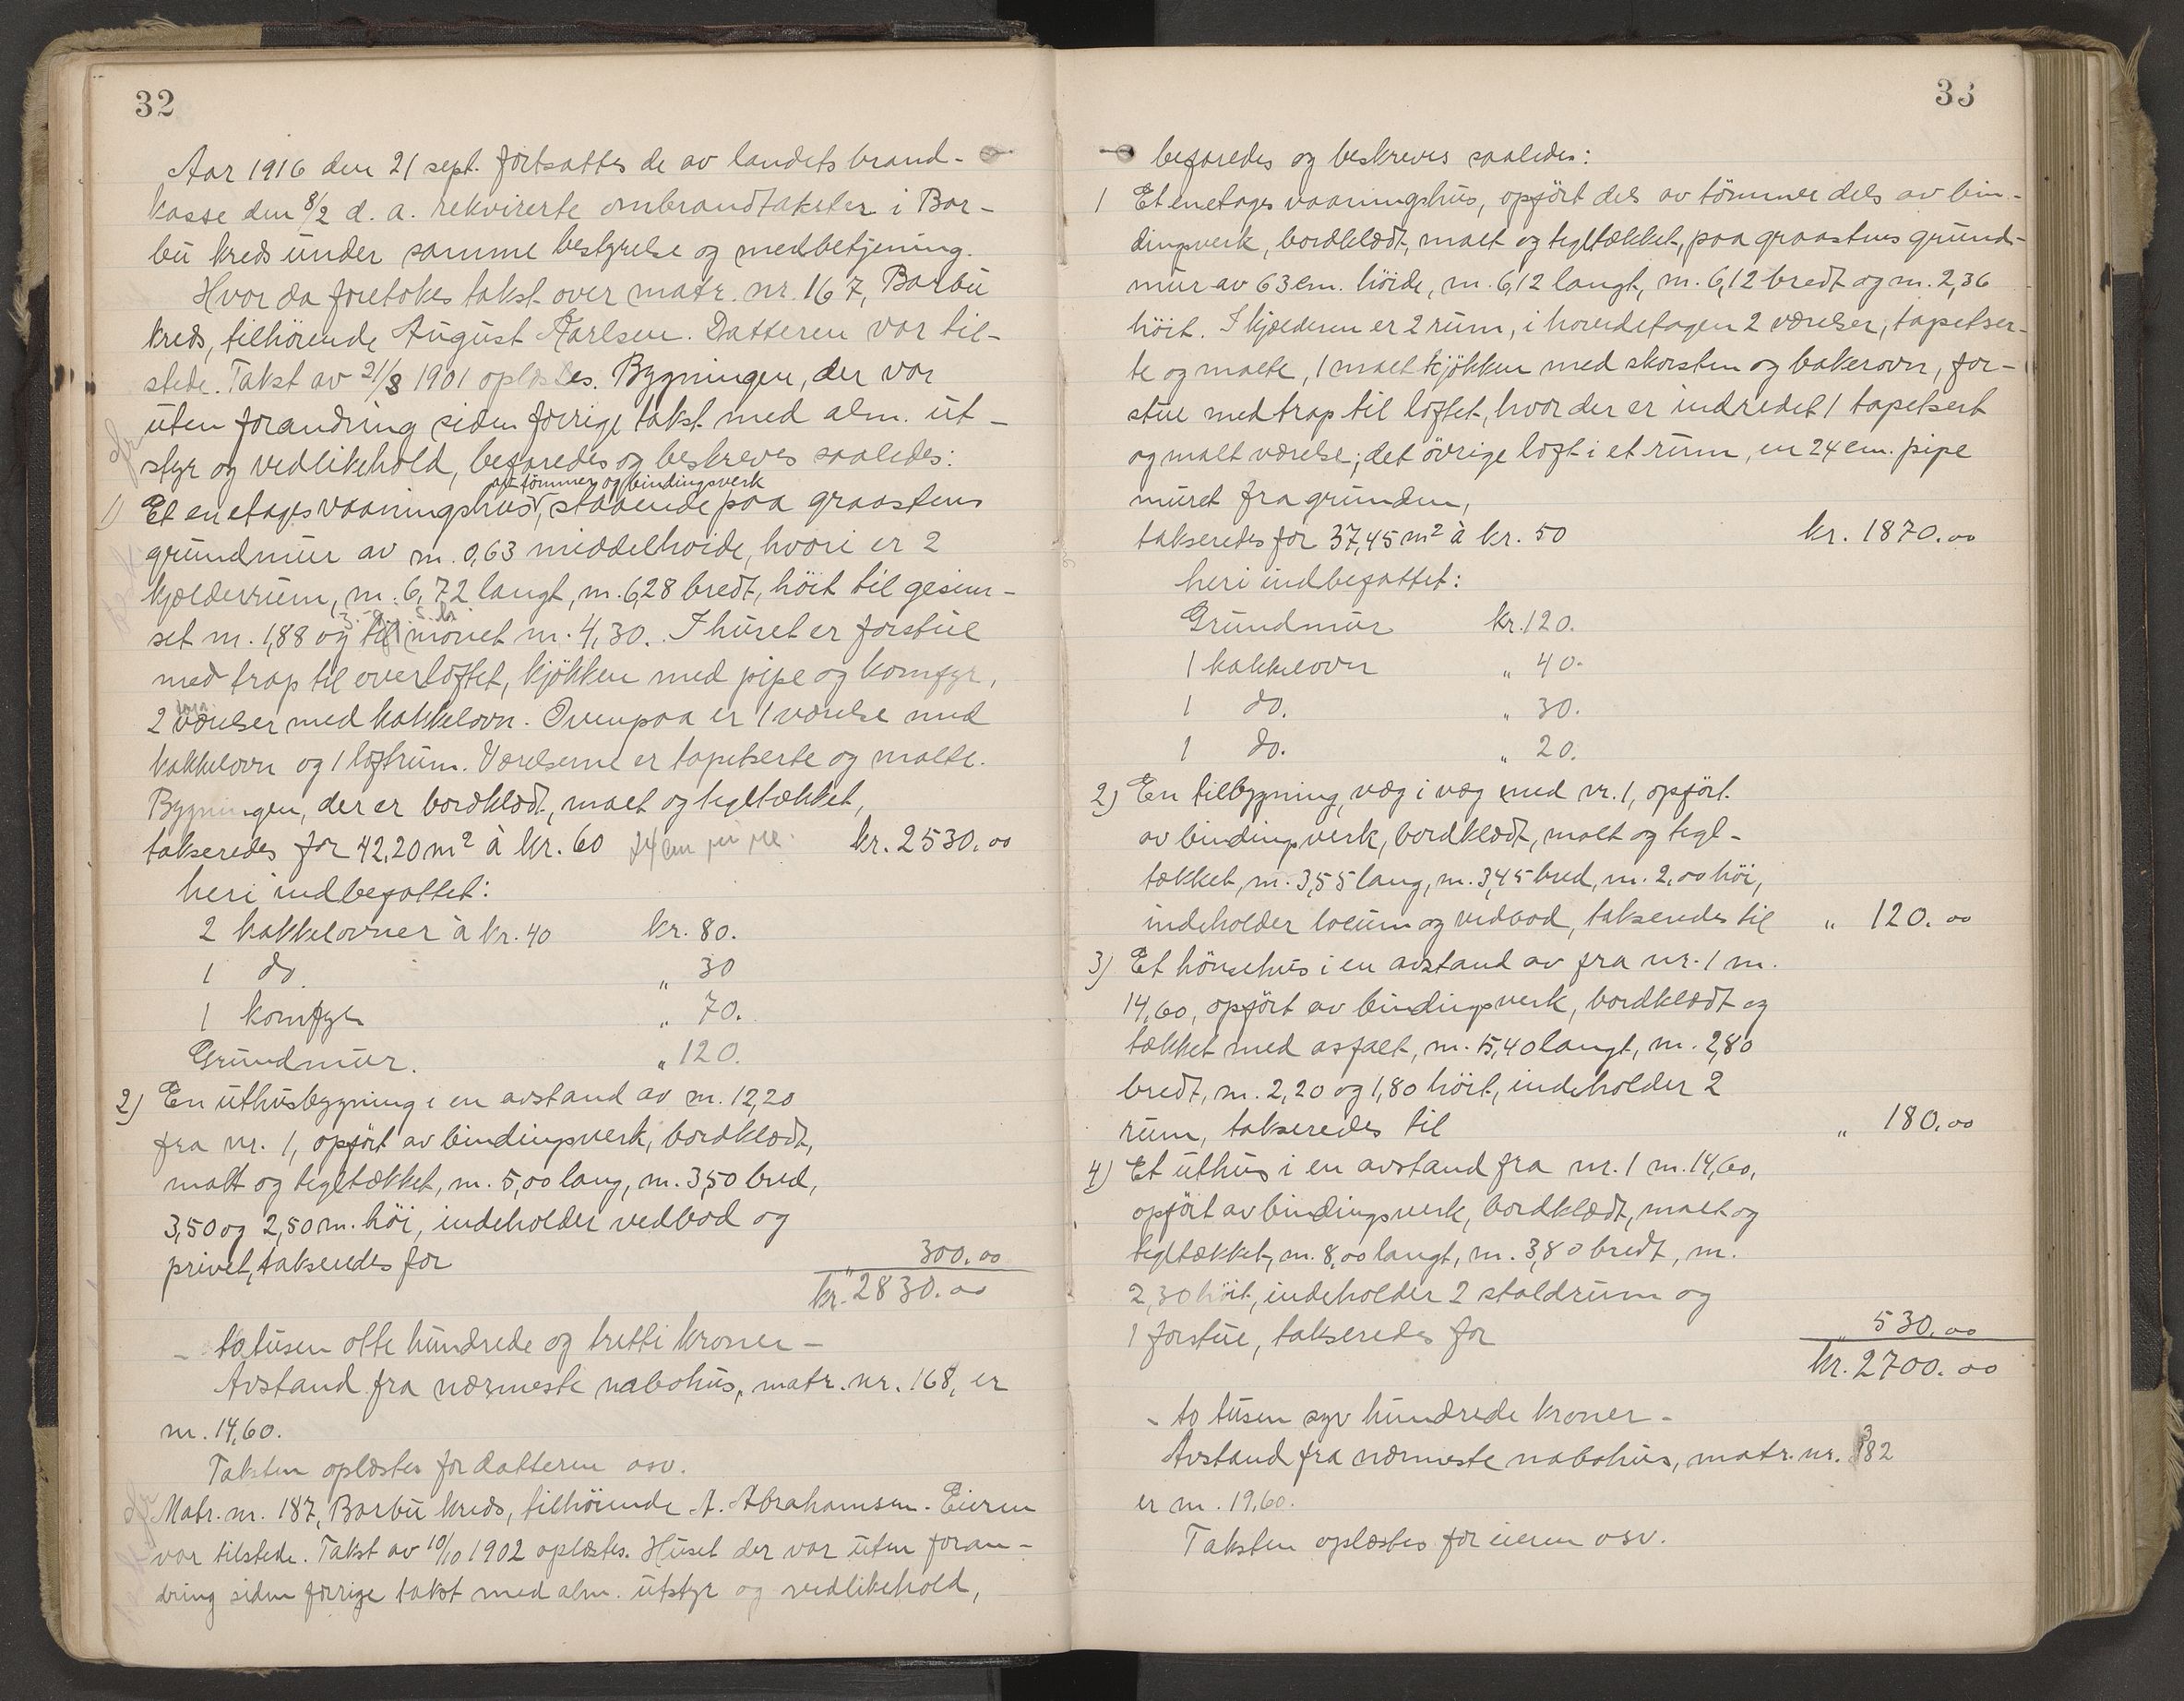 32
Aar 1916 den 21 sept. fortsattes de av landets brand-
kasse den 8/2 d. a. rekvirerte ombrandtakster i Bar-
bu kreds under samme bestyrelse og medbetjening.
Hvor da foretokes takst over matr. nr. 167, Barbu
kreds, tilhørende August Karlsen. Datteren var til-
stede. Takst av 21/8 1901 oplæstes. Bygningen, der var
uten forandring siden forrige takst med alm. ut-
styr og vedlikehold, befaredes og beskreves saaledes:
av tömmer og bindingsverk
1) Et enetages vaaningshus, staaende paa graastens
grundmur av m. 0,63 middelhøide, hvori er 2
kjælderrum, m. 6,72 langt, m. 6,28 bredt, höit til gesim-
set m. 1,88 og til mönet m. 4,30. I huset er forstue
med trap til overloftet, kjökken med pipe og komfyr,
2 værelser med kakkelovn. Ovenpaa er 1 værelse med
kakkelovn og 1 loftrum. Værelserne er tapetserte og malte.
Bygningen, der er bordklædt, malt og tegltækket,
takseredes for 42,20 m² à kr. 60 kr. 2530.00
heri indbefattet:
2 kakkelovner à kr. 40 kr. 80.
1 do. " 30
1 komfyr " 70.
Grundmur. " 120.
2) En uthusbygning i en avstand av m. 12,20
fra nr. 1, opfört av bindingsverk, bordklædt,
malt og tegltækket, m. 5,00 lang, m. 3,50 bred,
3,50 og 2,50 m. höi, indeholder vedbod og
privet, takseredes for " 300.00
kr. 2830.00
- to tusen otte hundrede og tretti kroner -
Avstand fra nærmeste nabohus, matr. nr. 168, er
m. 14,60.
Taksten oplæstes for datteren osv.
Matr. nr. 187, Barbu kreds, tilhörende A. Abrahamsen. Eieren
var tilstede. Takst av 10/10 1902 oplæstes. Huset der var uten foran-
dring siden forrige takst med alm. utstyr og vedlikehold,
33
befaredes og beskreves saaledes:
1 Et enetages vaaningshus, opfört dels av tömmer dels av bin-
dingsverk, bordklædt, malt og tegltækket, paa graastens grund-
mur av 63 cm. höide, m. 6,12 langt, m. 6,12 bredt og m. 2,36
höit. I kjælderen er 2 rum, i hovedetagen 2 værelser, tapetser-
te og malte, 1 malt kjökken med skorsten og bakerovn, for-
stue med trap til loftet, hvor der er indredet 1 tapetsert
og malt værelse; det övrige loft i et rum, en 24 cm. pipe
muret fra grunden,
takseredes for 37,45 m² à kr. 50 kr. 1870.00
heri indbefattet:
Grundmur kr. 120.
1 kakkelovn " 40.
1 do. " 30.
1 do. " 20.
2) En tilbygning, væg i væg med nr. 1, opfört
av bindingsverk, bordklædt, malt og tegl-
tækket, m. 3,55 lang, m. 3,45 bred, m. 2,00 höi,
indeholder locum og vedbod, takseredes til " 120.00
3) Et hönsehus i en avstand av fra nr. 1 m.
14,60, opfört av bindingsverk, bordklædt og
tækket med asfalt, m. 15,40 langt, m. 2,80
bredt, m. 2,20 og 1,80 höit, indeholder 2
rum, takseredes til " 180.00
4) Et uthus i en avstand fra nr. 1 m. 14,60,
opfört av bindingsverk, bordklædt, malt og
tegltækket, m. 8,00 langt, m. 3,80 bredt, m.
2,30 höit, indeholder 2 staldrum og
1 forstue, takseredes for " 530.00
kr. 2700.00
- to tusen syv hundrede kroner -
Avstand fra nærmeste nabohus, matr. nr. 382
er m. 19,60.
Taksten oplæstes for eieren osv.